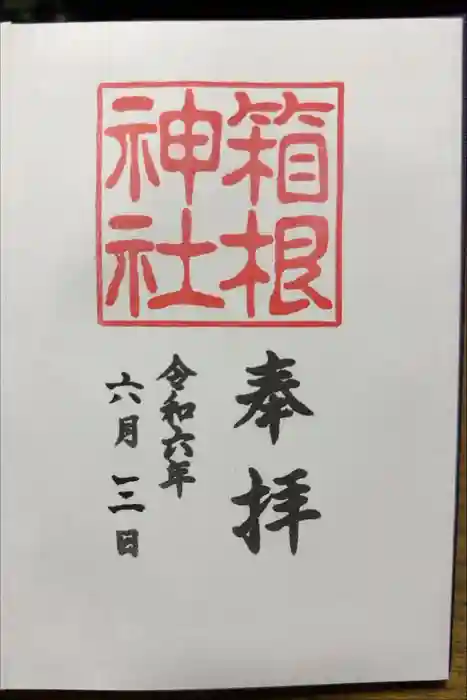 箱根
神社
奉拝
令和六年
六月三日